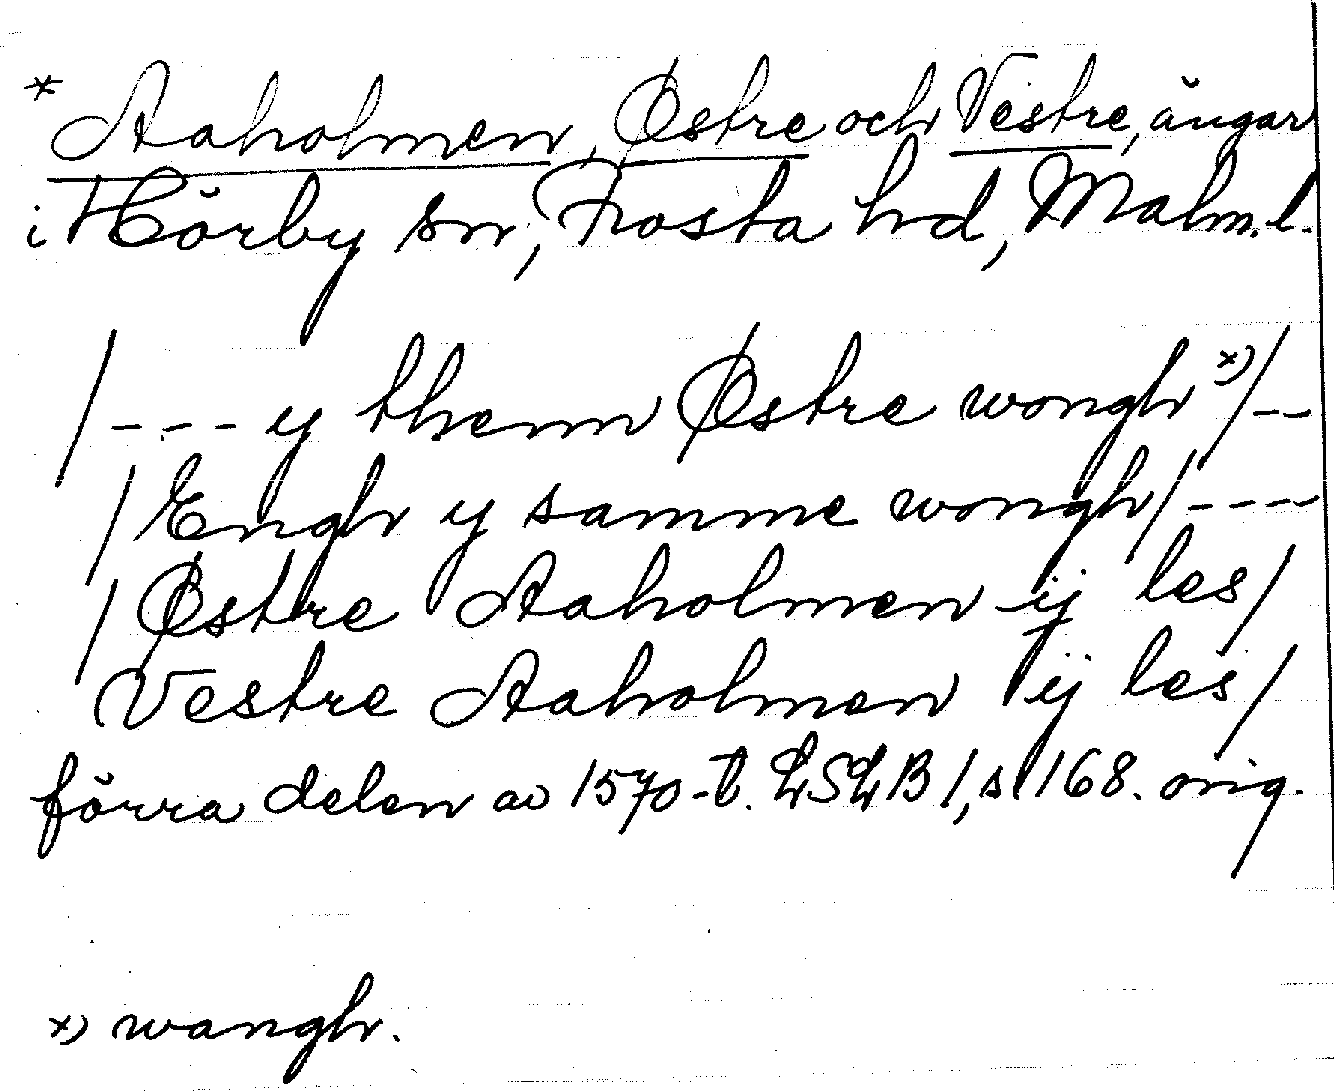 * Aaholmen, Østre och Vestre, ängar
i Hörby sn, Frosta hd, Malm.l.
/--- y thenn Østre wongh x)/--
/Engh y samme wongh/----
/Østre Aaholmen ij les/
Vestre Aaholmen ij les/
förra delen av 1570-t. LSLB 1, s 168. orig.
x) wangh.